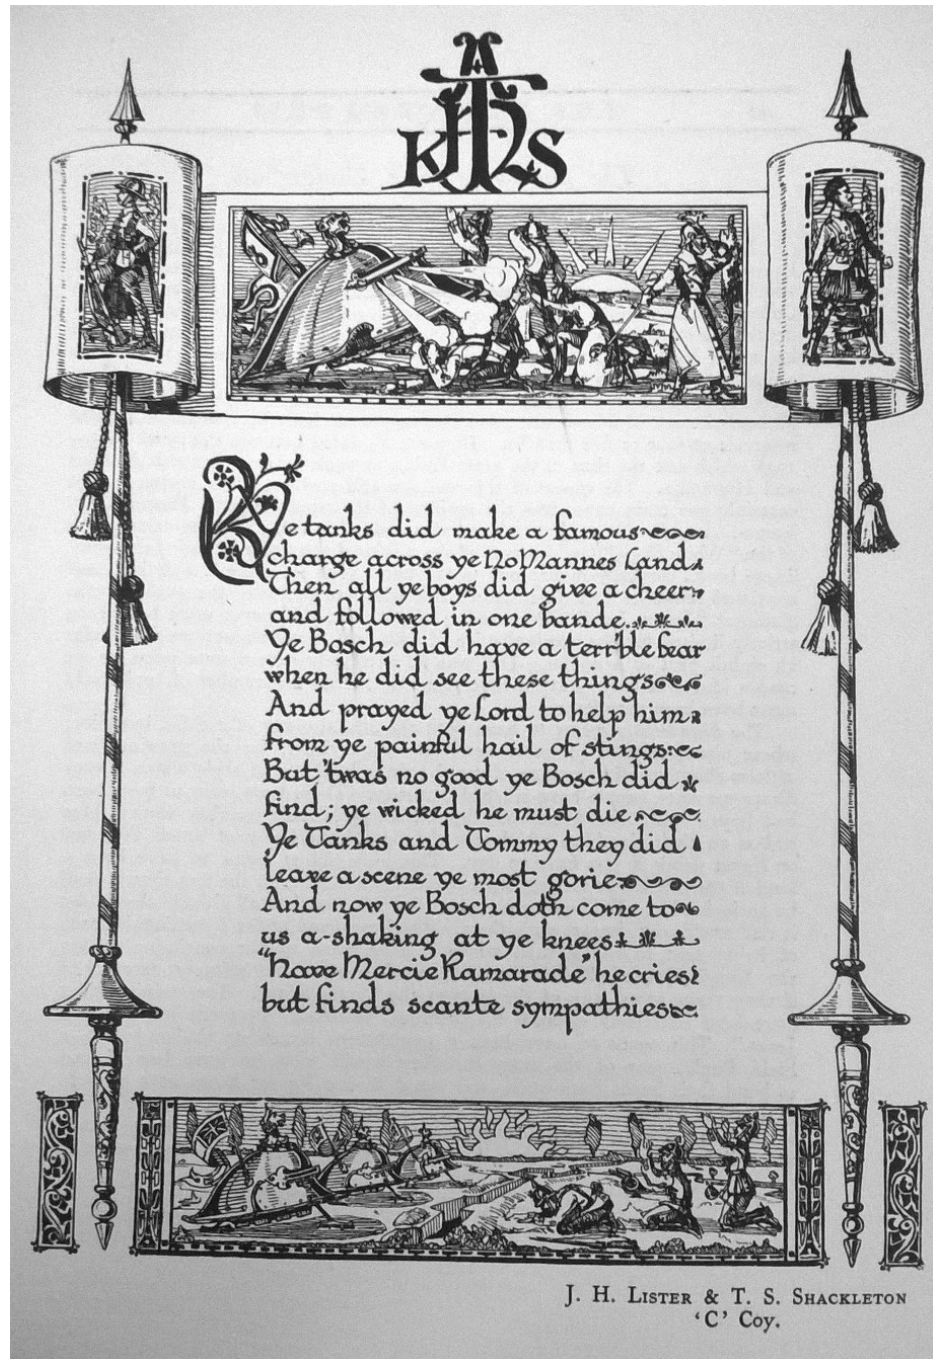 Ye tanks did make a famous
charge across ye No Mannes Land
Then all ye boys did give a cheer
and followed in one bande.
Ye Bosch did have a terr'ble fear
when he did see these things
And prayed ye Lord to help him
from ye painful hail of stings
But 'twas no good ye Bosch did
find; ye wicked he must die
Ye Tanks and Tommy they did
leave a scene ye most gorie
And now ye Bosch doth come to
us a-shaking at ye knees
"have Mercie Kamarade" he cries
but finds scante sympathies
J. H. LISTER & T. S. SHACKLETON
'C' Coy.